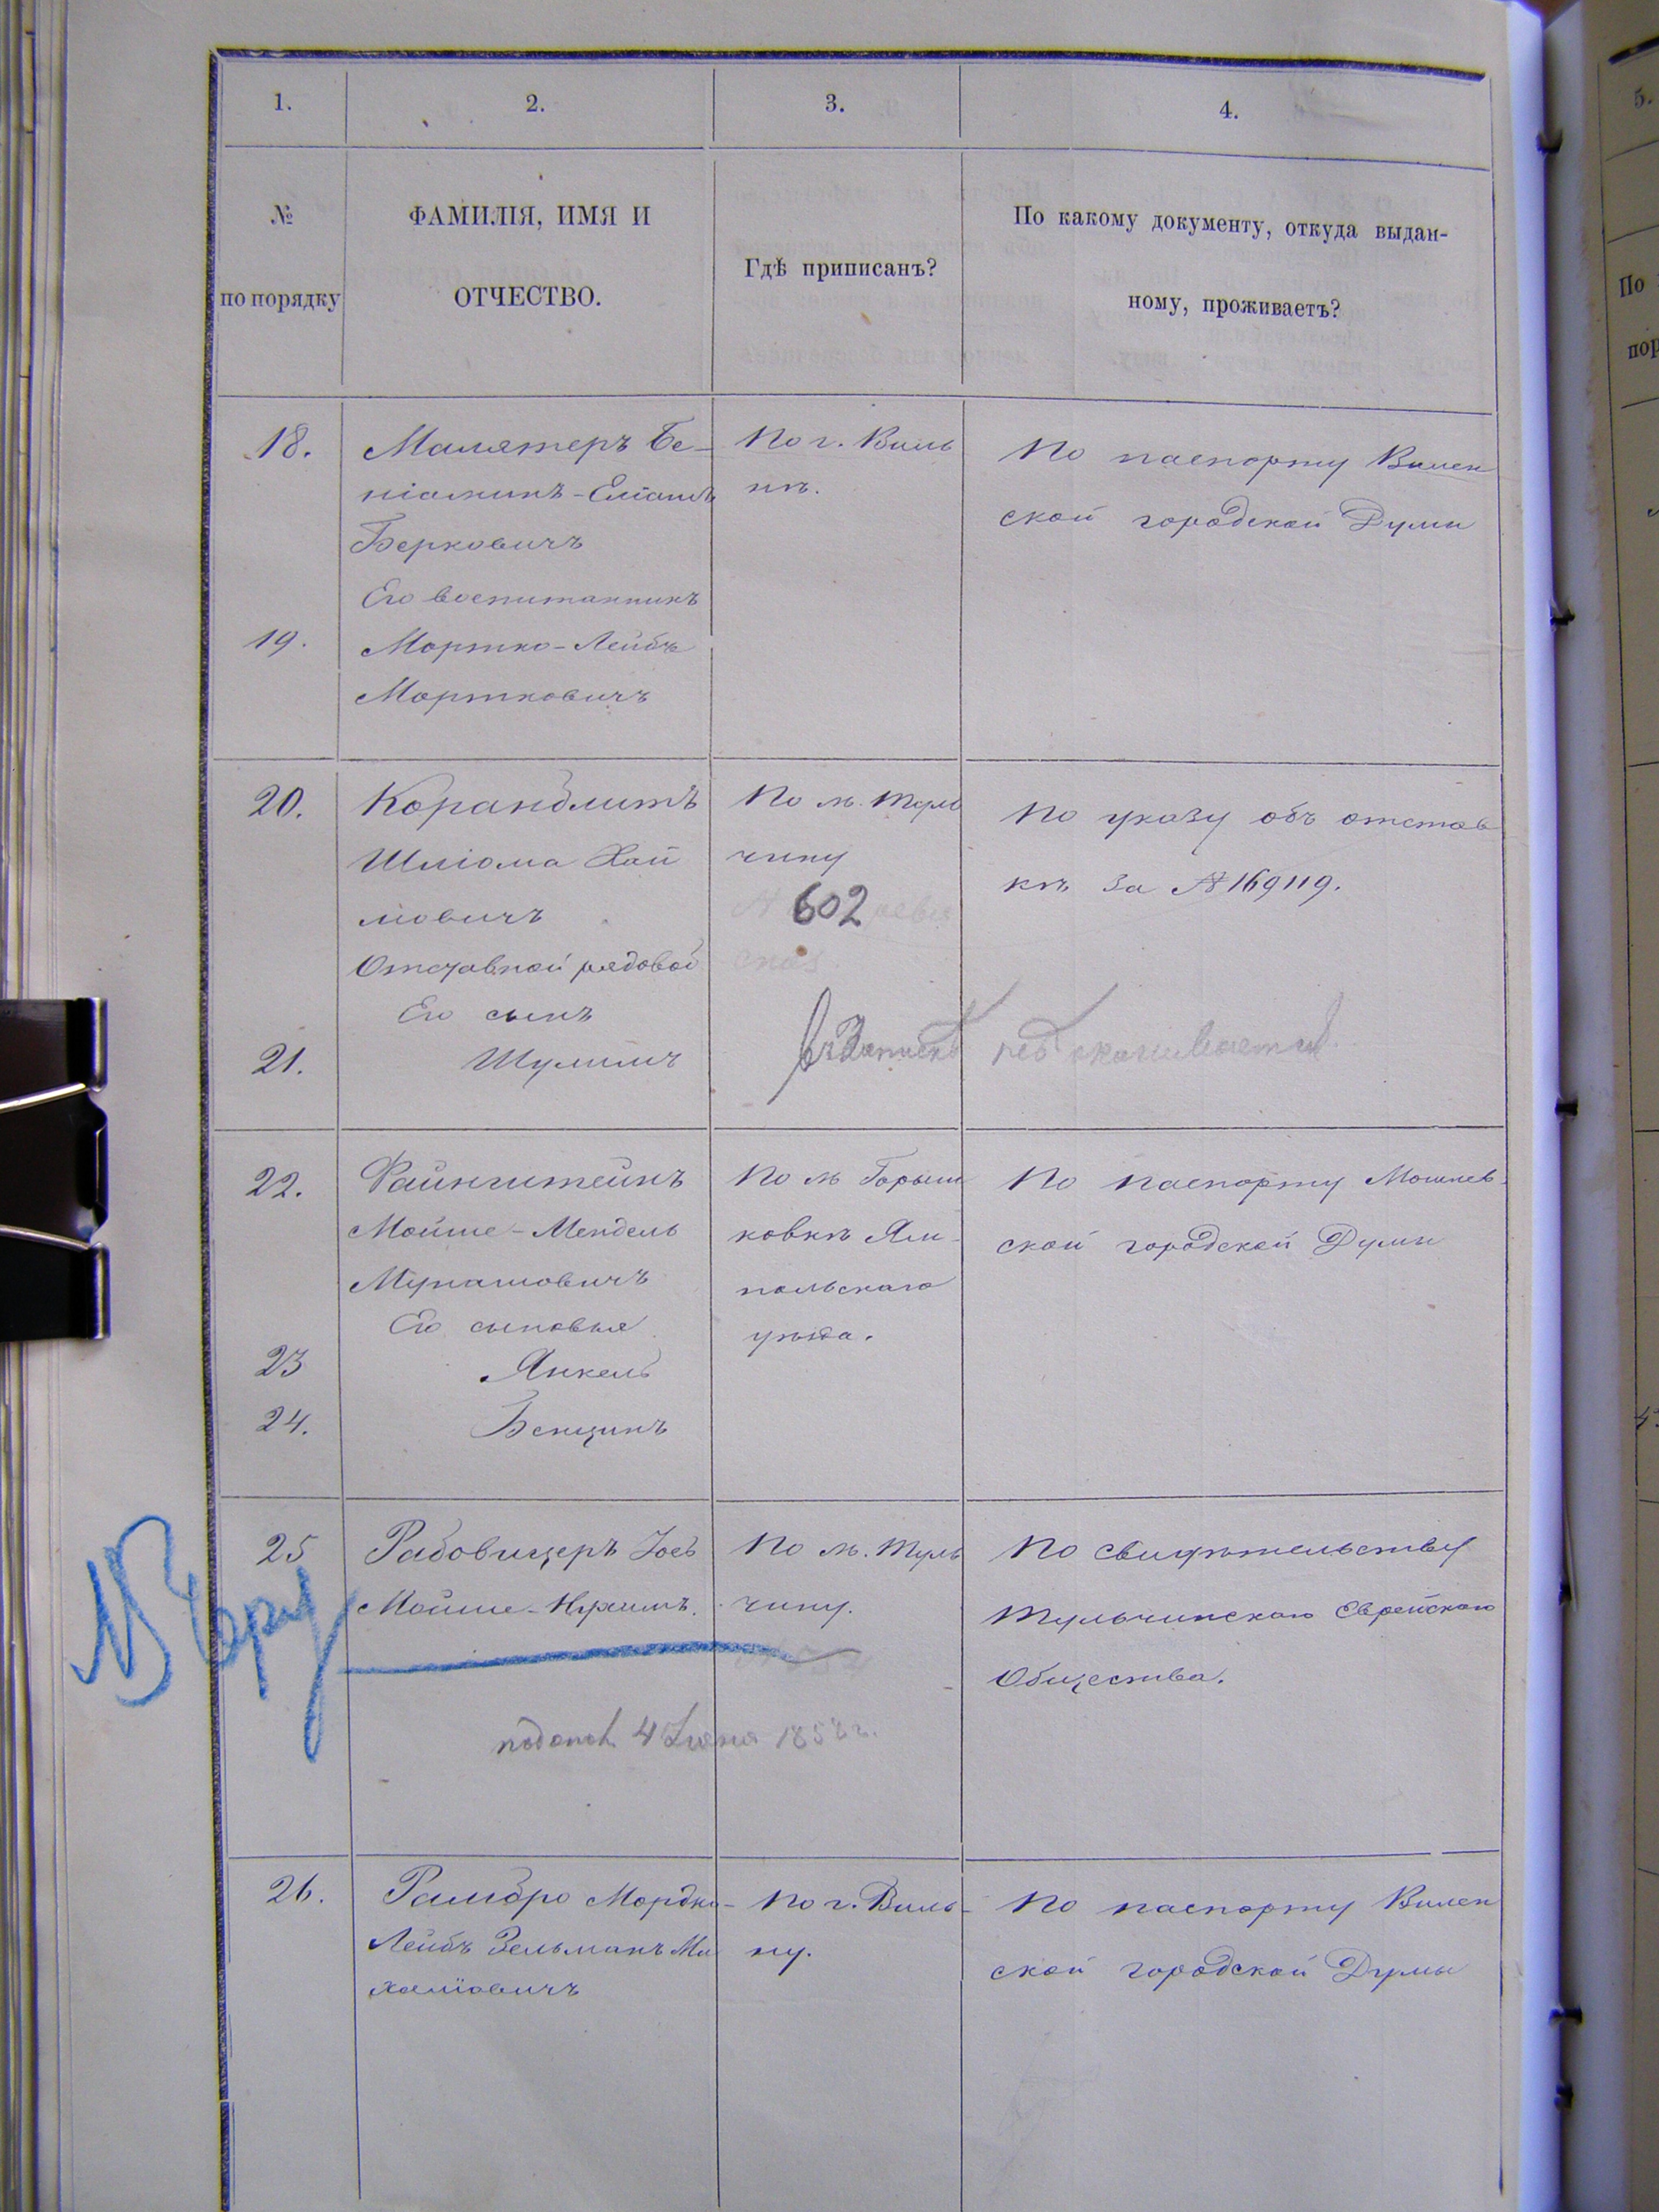 1.
2.
3.
4.
№
по порядку
ФАМИЛІЯ, ИМЯ И
ОТЧЕСТВО.
Гдѣ приписанъ?
По какому документу, откуда выдан-
ному, проживаетъ?
18.
Малятеръ Бе-
ніаминъ-Еліашъ
Берковичъ
Его воспитанникъ
19.
Мортко-Лейбъ
Мортковичъ
По г. Виль
нѣ.
По паспорту Вилен
ской городской Думы
20.
Коранблитъ
Шліома Хай
мовичъ
Отставной рядовой
Его сынъ
21.
Шулимъ
По м. Туль
чину
№ 602 реви
сказ.
По указу объ отстав
кѣ за № 169119.
22.
Файнштейнъ
Мойше-Мендель
Мунашовичъ
Его сыновья
23
Янкель
24.
Бенционъ
По м Горыш
ковкѣ Ям-
польскаго
уѣзда.
По паспорту
ской городской Думы
25
Рабовицеръ Іось
Мойше-Нухимъ.
По м. Туль
чину.
По свидѣтельству
Тульчинскаго Еврейскаго
Общества.
4 1858 г.
26.
Рамбро Мордко-
Лейбъ Зельманъ Ми
халіовичъ
По г. Виль-
ну.
По паспорту Вилен
ской городской Думы
5.
По
пор